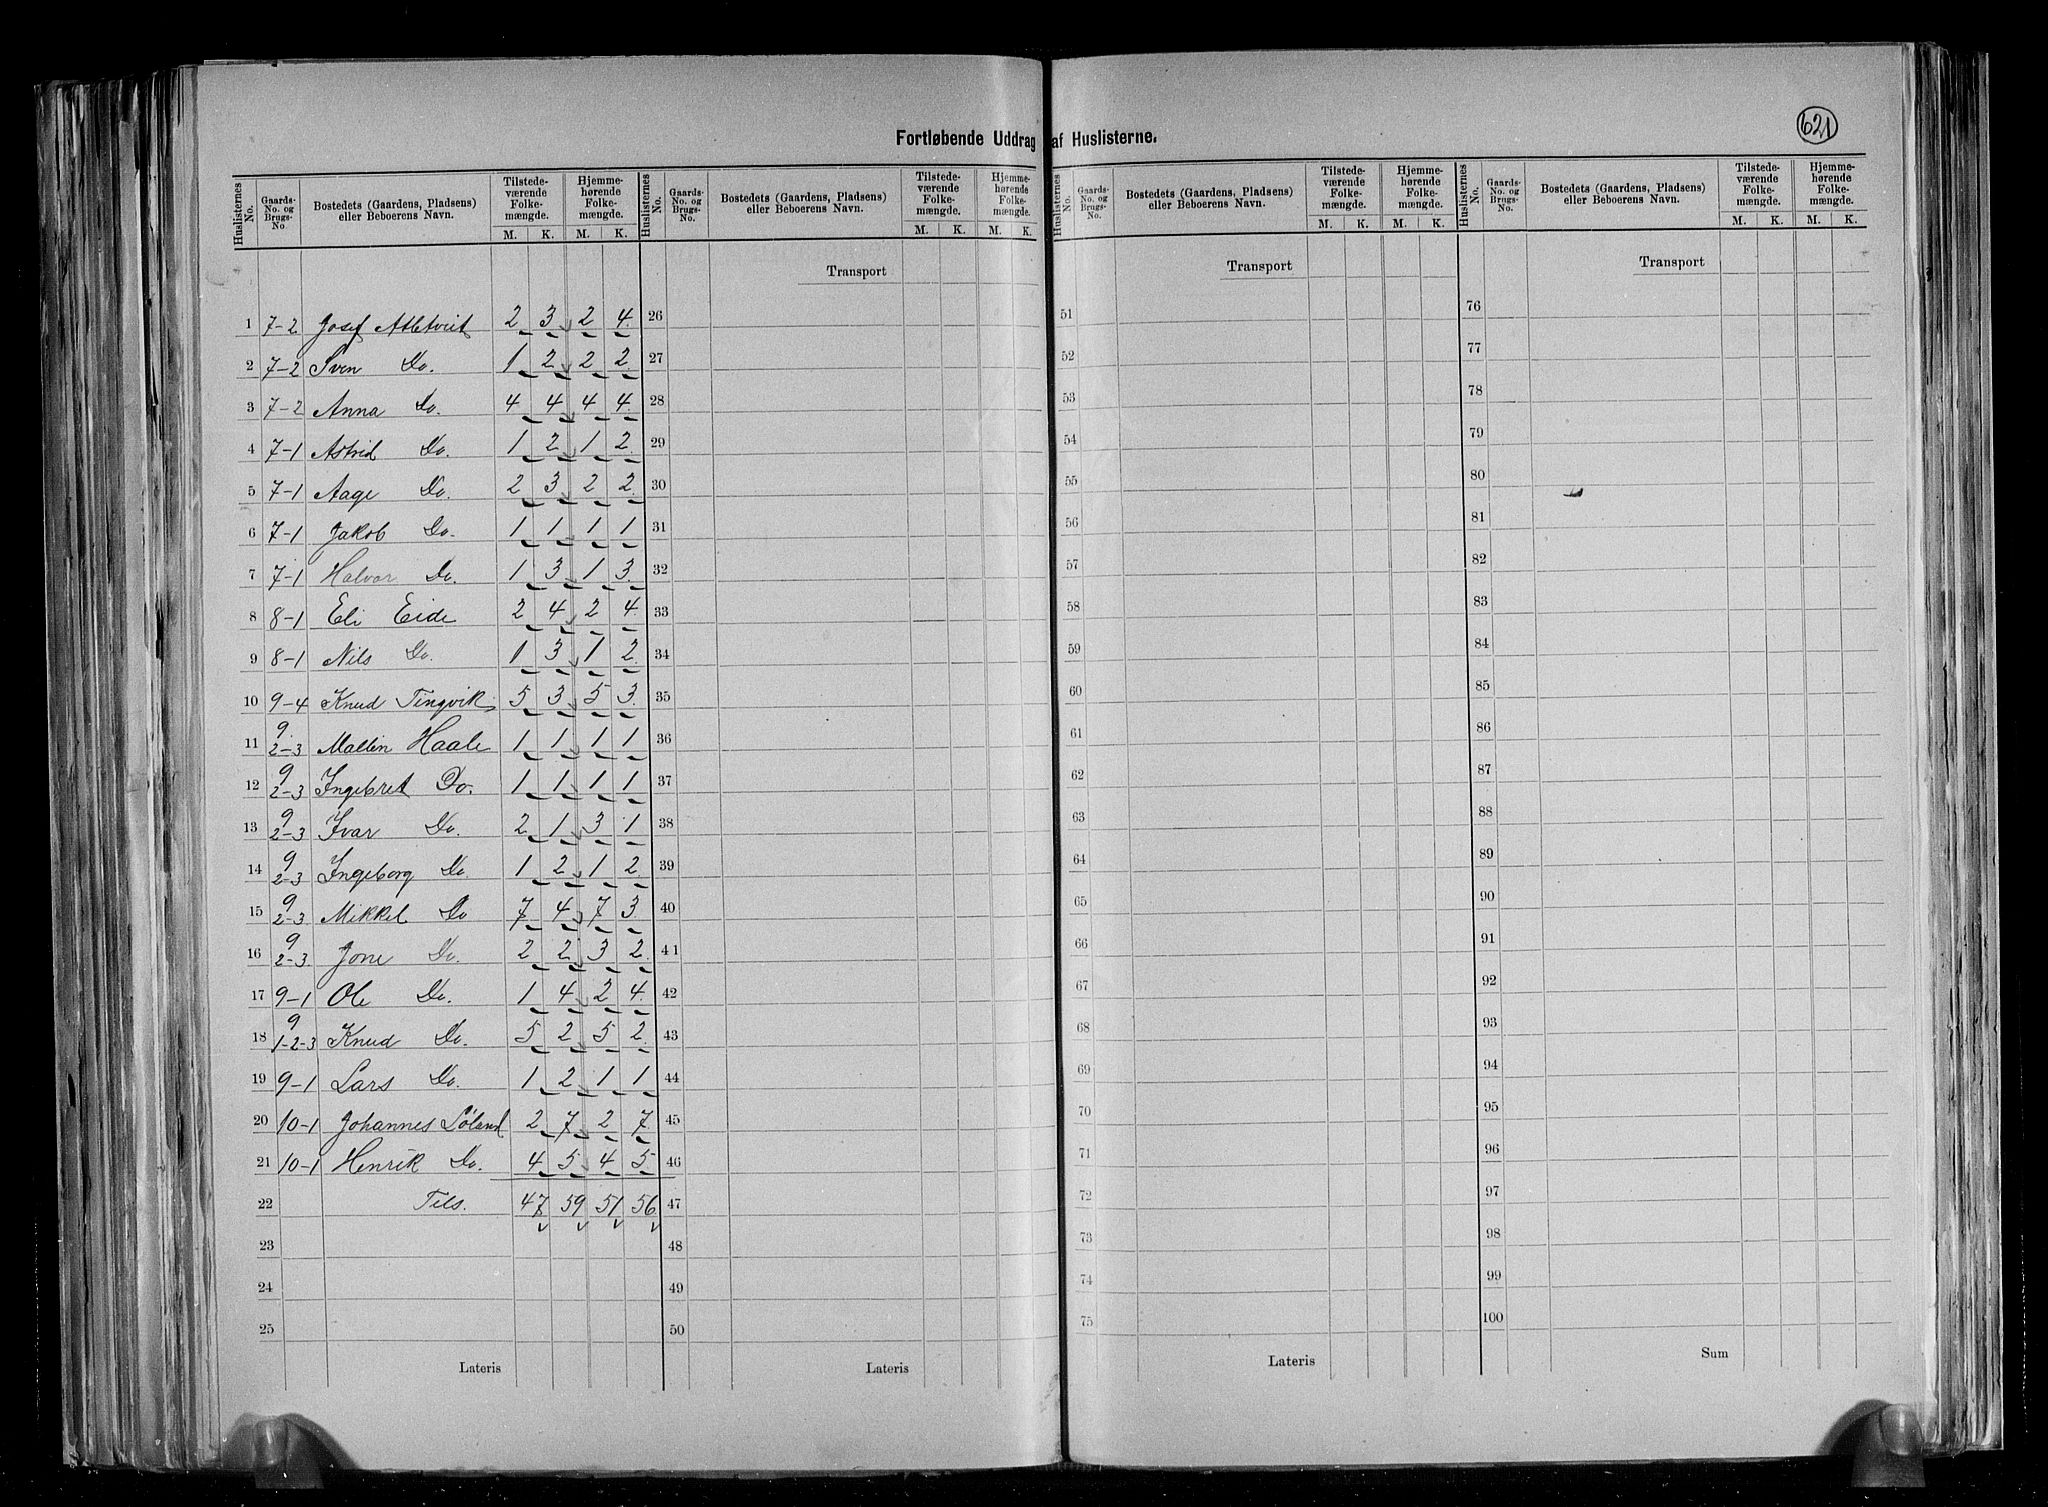 621
Fortløbende Uddrag af Huslisterne.
Huslisternes No. Gaards-No. og Brugs-No. Bostedets (Gaardens, Pladsens) eller Beboerens Navn. Tilstedeværende Folkemængde. M. K. Hjemmehørende Folkemængde. M. K.
Huslisternes No. Gaards-No. og Brugs-No. Bostedets (Gaardens, Pladsens) eller Beboerens Navn. Tilstedeværende Folkemængde. M. K. Hjemmehørende Folkemængde. M. K.
Huslisternes No. Gaards-No. og Brugs-No. Bostedets (Gaardens, Pladsens) eller Beboerens Navn. Tilstedeværende Folkemængde. M. K. Hjemmehørende Folkemængde. M. K.
Huslisternes No. Gaards-No. og Brugs-No. Bostedets (Gaardens, Pladsens) eller Beboerens Navn. Tilstedeværende Folkemængde. M. K. Hjemmehørende Folkemængde. M. K.
Transport Transport Transport
1 7-2 Josef 2 3 2 4 26 51 76
2 7-2 Sven Do. 1 2 2 2 27 52 77
3 7-2 Anna Do. 4 4 4 4 28 53 78
4 7-1 Astrid Do. 1 2 1 2 29 54 79
5 7-1 Aage Do. 2 3 2 2 30 55 80
6 7-1 Jakob Do. 1 1 1 1 31 56 81
7 7-1 Halvor Do. 1 3 1 3 32 57 82
8 8-1 Eli Eide 2 4 2 4 33 58 83
9 8-1 Nils Do. 1 3 1 2 34 59 84
10 9-4 Knud Tingvik 5 3 5 3 35 60 85
11 9 2-3 Malli Haale 1 1 1 1 36 61 86
12 9 2-3 Ingebret Do. 1 1 1 1 37 62 87
13 9 2-3 Ivar Do. 2 1 3 1 38 63 88
14 9 2-3 Ingeborg Do 1 2 1 2 39 64 89
15 9 2-3 Mikkel Do 7 4 7 3 40 65 90
16 9 2-3 Jone Do. 2 2 3 2 41 66 91
17 9-1 Ole Do. 1 4 2 4 42 67 92
18 9 1-2-3 Knud Do. 5 2 5 2 43 68 93
19 9-1 Lars Do. 1 2 1 1 44 69 94
20 10-1 Johannes Løland 2 7 2 7 45 70 95
21 10-1 Henrik Do. 4 5 4 5 46 71 96
22 Tils. 47 59 51 56 47 72 97
23 48 73 98
24 49 74 99
25 50 75 100
Lateris Lateris Lateris Sum